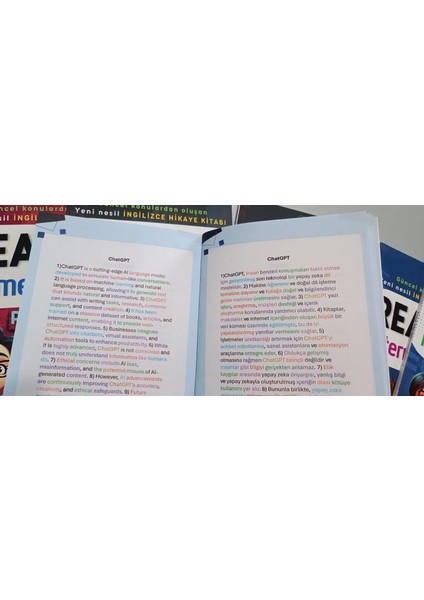 Güncel konulardan oluşan
Yeni nesil İNGİLİZCE HİKAYE KİTABI
ChatGPT
1)ChatGPT is a cutting-edge AI language model
developed to simulate human-like conversations.
2) It is based on machine learning and natural
language processing, allowing it to generate text
that sounds natural and informative. 3) ChatGPT
can assist with writing tasks, research, content
creation, and customer support. 4) It has been
trained on a massive dataset of books, articles, and
internet content, enabling it to provide well-
structured responses. 5) Businesses integrate
ChatGPT into chatbots, virtual assistants, and
automation tools to enhance productivity. 6) While
it is highly advanced, ChatGPT is not conscious and
does not truly understand information like humans
do. 7) Ethical concerns include AI bias,
misinformation, and the potential misuse of AI-
generated content. 8) However, AI advancements
are continuously improving ChatGPT's accuracy,
creativity, and ethical safeguards. 9) Future
ChatGPT
1)ChatGPT, insan benzeri konuşmaları taklit etmek
için geliştirilmiş son teknoloji bir yapay zeka dil
modelidir. 2) Makine öğrenimi ve doğal dil işleme
temeline dayanır ve kulağa doğal ve bilgilendirici
gelen metinler üretmesini sağlar. 3) ChatGPT yazı
işleri, araştırma, müşteri desteği ve içerik
oluşturma konularında yardımcı olabilir. 4) Kitaplar,
makaleler ve internet içeriğinden oluşan büyük bir
veri kümesi üzerinde eğitilmiştir, bu da iyi
yapılandırılmış yanıtlar vermesini sağlar. 5)
İşletmeler üretkenliği artırmak için ChatGPT'yi
sohbet robotlarına, sanal asistanlara ve otomasyon
araçlarına entegre eder. 6) Oldukça gelişmiş
olmasına rağmen ChatGPT bilinçli değildir ve
insanlar gibi bilgiyi gerçekten anlamaz. 7) Etik
kaygılar arasında yapay zeka önyargısı, yanlış bilgi
ve yapay zekayla oluşturulmuş içeriğin olası kötüye
kullanımı yer alır. 8) Bununla birlikte, yapay zeka